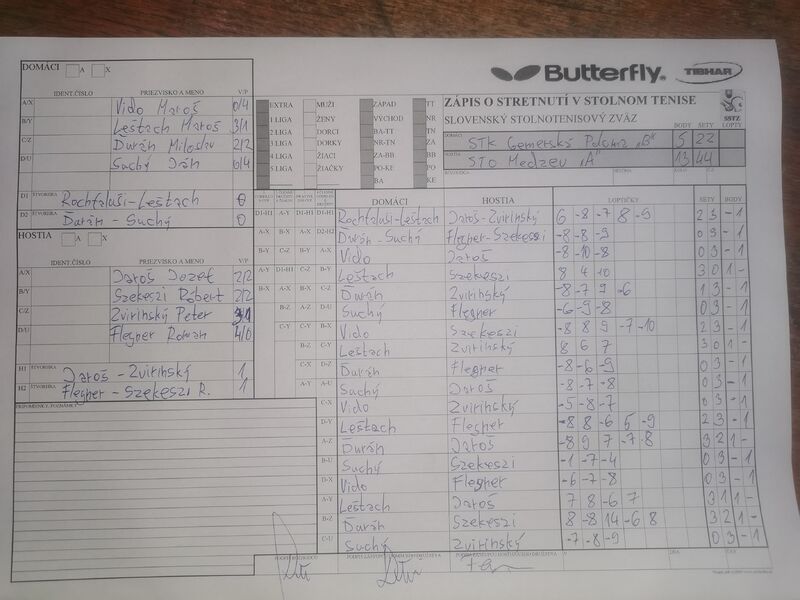 DOMÁCI A X
IDENT.ČÍSLO PRIEZVISKO A MENO V/P
A/X Vido Maroš 0/4
B/Y Leštach Maroš 3/1
C/Z Ďurán Miloslav 2/2
D/U Suchý Ján 0/4
D1 ŠTVORHRA Rochfaluši-Leštach 0
D2 ŠTVORHRA Ďurán - Suchý 0
HOSTIA A X
IDENT.ČÍSLO PRIEZVISKO A MENO V/P
A/X Jaroš Jozef 2/2
B/Y Szekeszi Róbert 2/2
C/Z Zvirinský Peter 3/1
D/U Flegner Roman 4/0
H1 ŠTVORHRA Jaroš - Zvirinský 1
H2 ŠTVORHRA Flegner - Szekeszi R. 1
PRIPOMIENKY, POZNÁMKY
Butterfly TIBHAR
EXTRA MUŽI ZÁPAD TT
1 LIGA ŽENY VÝCHOD NR
2 LIGA DORCI BA-TT TN
3 LIGA DORKY NR-TN ZA
4 LIGA ŽIACI ZA-BB BB
5 LIGA ŽIAČKY PO-KE PO
BA KE
ZÁPIS O STRETNUTÍ V STOLNOM TENISE
SLOVENSKÝ STOLNOTENISOVÝ ZVÄZ
SSTZ
BODY SETY LOPTY
DOMÁCI STK Gemerská Poloma "B" 5 22
HOSTIA STO Medzev "A" 13 44
DOMÁCI HOSTIA LOPTIČKY SETY BODY
Rochfaluši-Leštach Jaroš-Zvirinský 6 -8 -7 8 -9 2 3 - 1
Ďurán - Suchý Flegner-Szekeszi -8 -8 -9 0 3 - 1
Vido Jaroš -8 -10 -8 0 3 - 1
Leštach Szekeszi 8 4 10 3 0 1 -
Ďurán Zvirinský -8 -7 9 -6 1 3 - 1
Suchý Flegner -6 -9 -8 0 3 - 1
Vido Szekeszi -8 8 9 -7 -10 2 3 - 1
Leštach Zvirinský 8 6 7 3 0 1 -
Ďurán Flegner -8 -6 -9 0 3 - 1
Suchý Jaroš -8 -7 -8 0 3 - 1
Vido Zvirinský -5 -8 -7 0 3 - 1
Leštach Flegner -8 8 -6 5 -9 2 3 - 1
Ďurán Jaroš -8 9 7 -7 8 3 2 1 -
Suchý Szekeszi -1 -7 -4 0 3 - 1
Vido Flegner -6 -7 -8 0 3 - 1
Leštach Jaroš 7 8 -6 7 3 1 1 -
Ďurán Szekeszi 8 -8 14 -6 8 3 2 1 -
Suchý Zvirinský -7 -8 -9 0 3 - 1